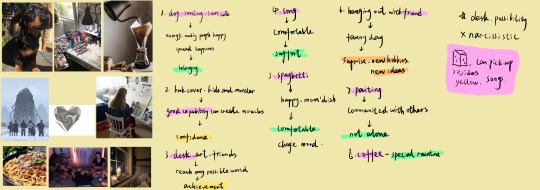 1. dog. smiling. sun
energy. make people happy
spread happiness
2. book cover - kids and monster
good capability can create miracles
confidence
3. desk. art. friends
reach any possible world
achievement
4. song
comfortable
support
5. spaghetti
happy. mom' dish
comfortable
chage mood.
6. hanging out with friend
funny day
surprise. new hobbies
new ideas
7. painting
communited with others
not alone
8. coffee - special routine
# desk. possibility
x narcissistic
can pick up
yellow. song.